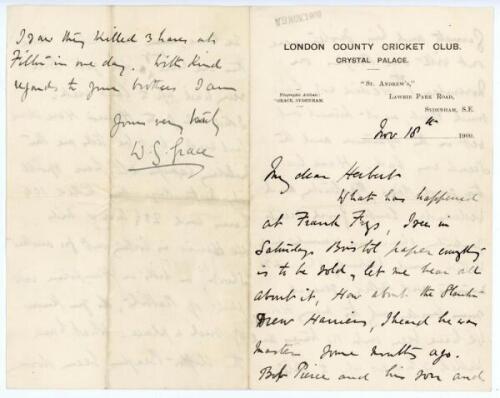 LONDON COUNTY CRICKET CLUB.
CRYSTAL PALACE.
"ST. ANDREW'S,"
LAWRIE PARK ROAD,
SYDENHAM, S.E.
Telegraphic Address:
"GRACE, SYDENHAM."
Nov 18th 1900.
My dear Herbert
What has happened
at Frank Frys, I see in
Saturdays Bristol paper everything
is to be sold, let me hear all
about it, How about the
Drew Harriers, I heard he was
Master some months ago.
Bob Pierce and his son and
I saw they killed 3 hares at
Filton in one day. With kind
regards to your brothers I am
Yours very truly
W. G. Grace